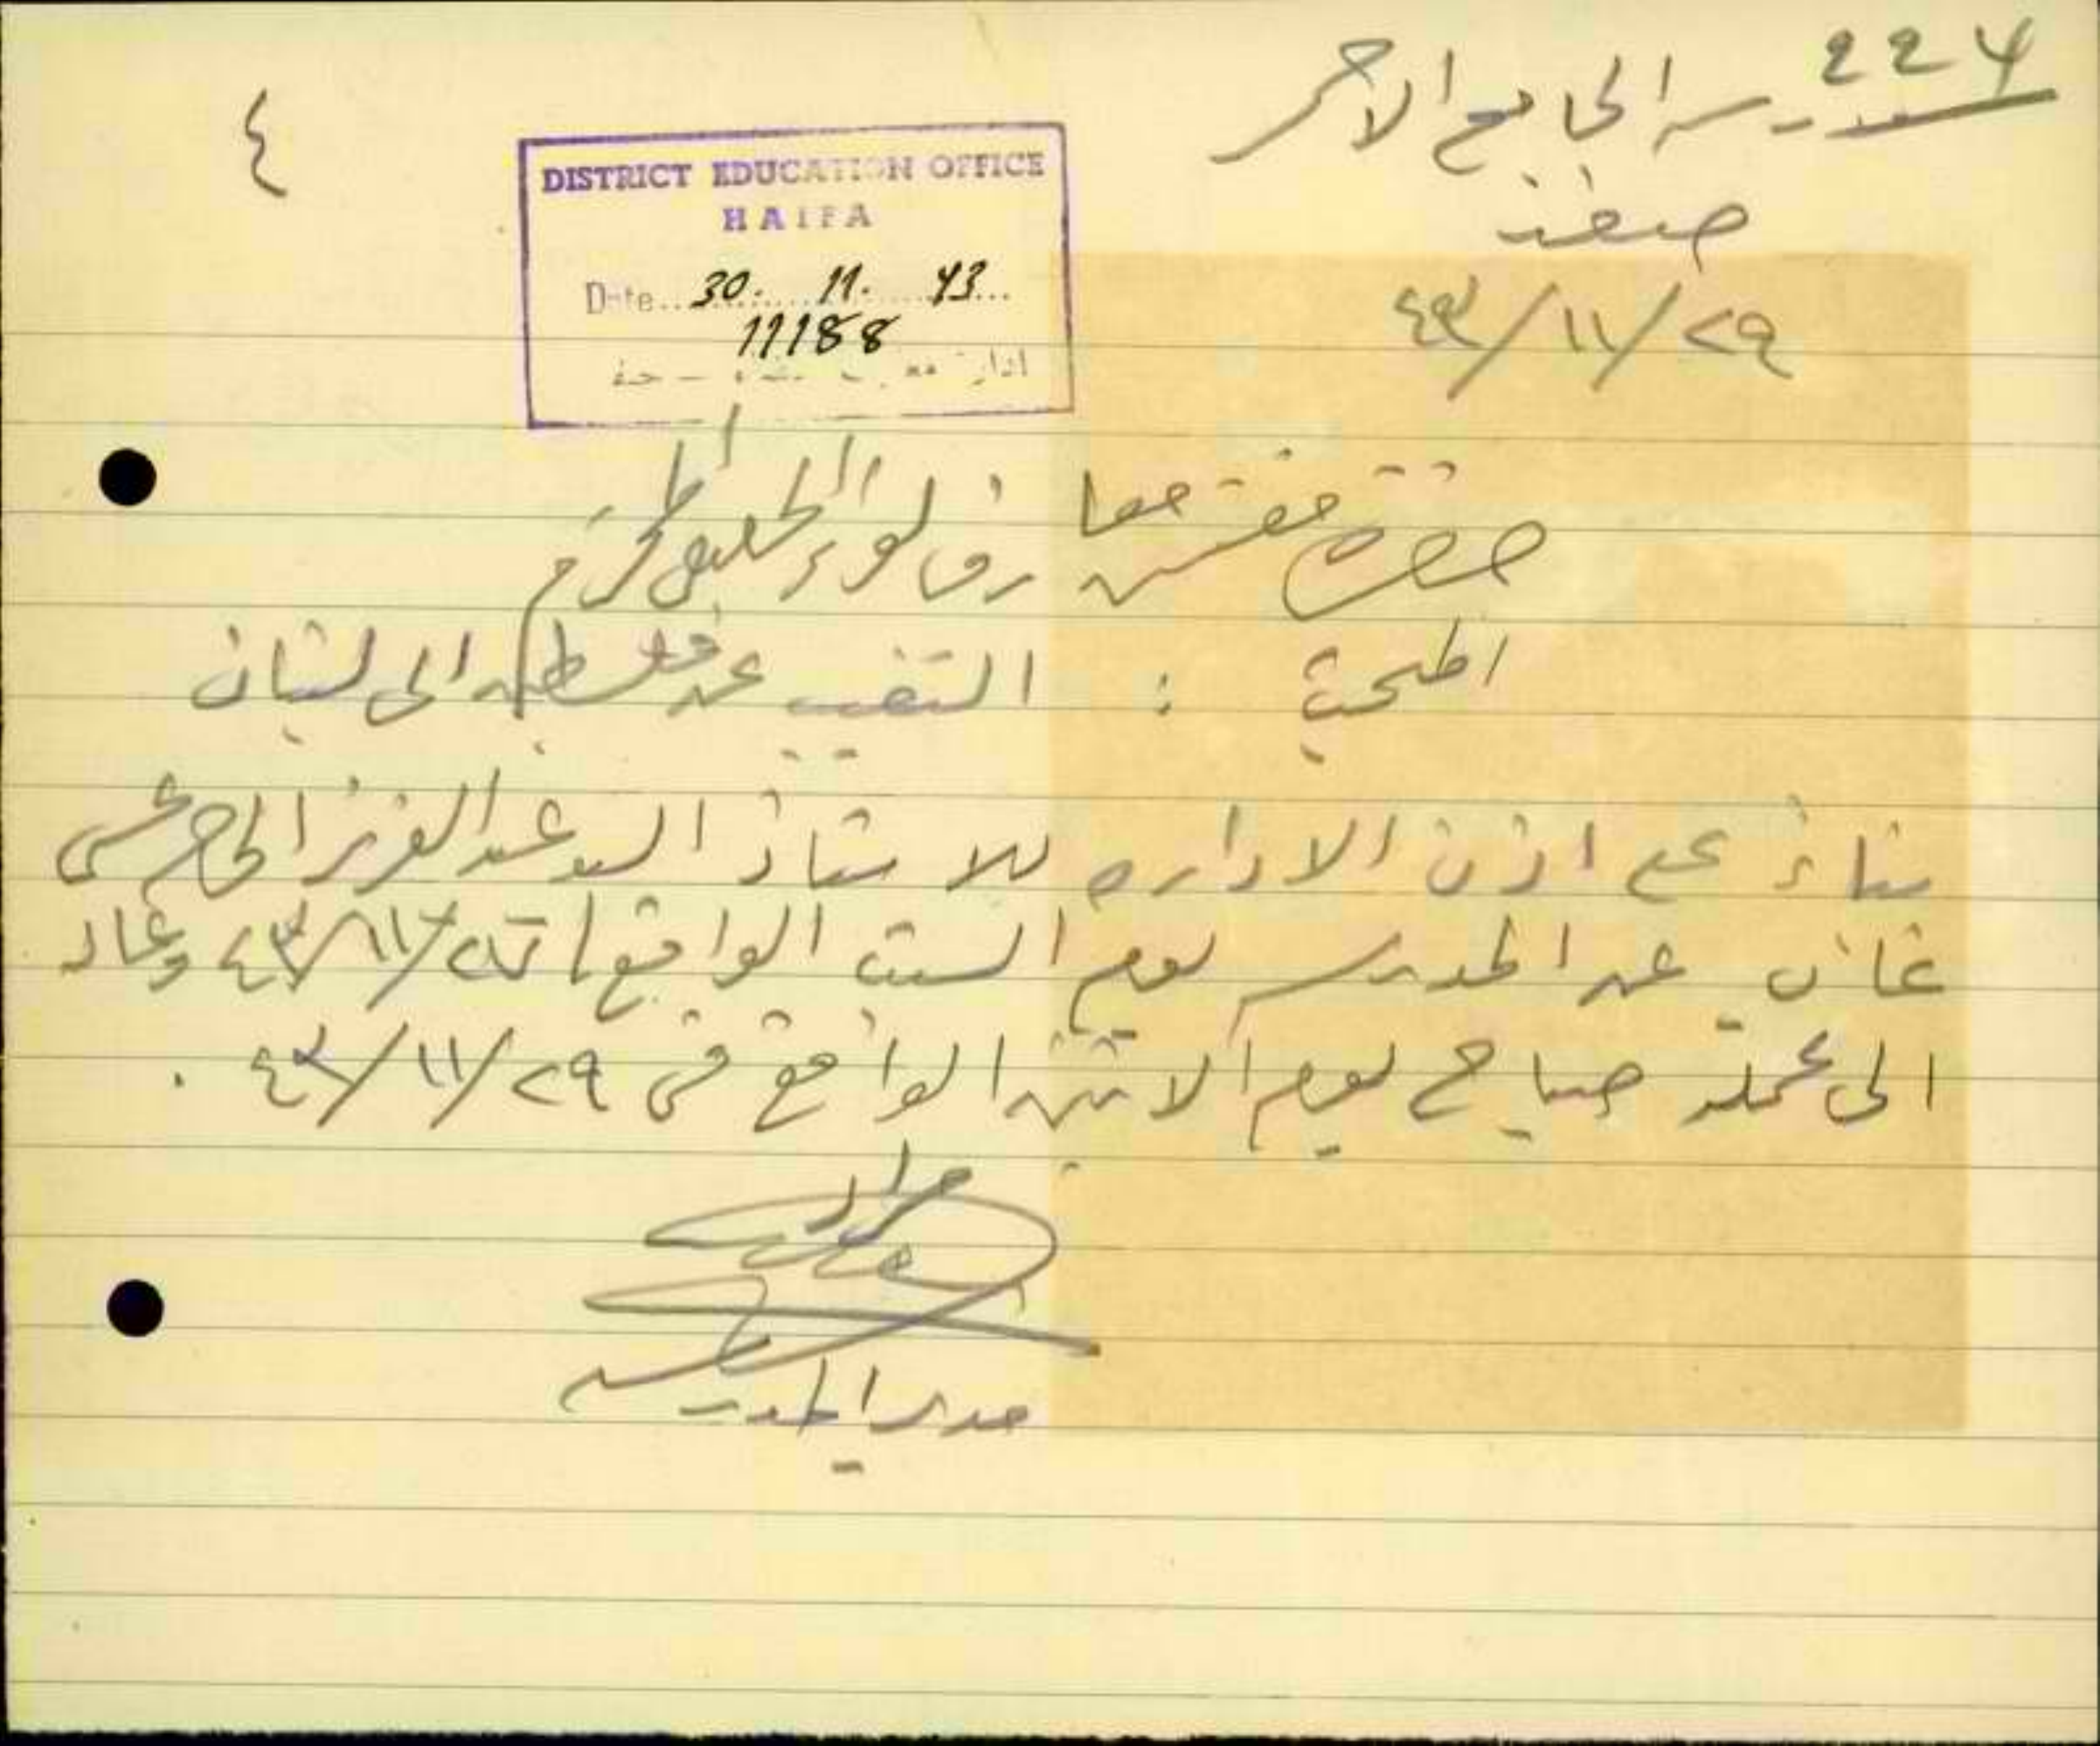 224
مدرسة الجامع الاحمر
صفد
٢٩/١١/٤٣
٤
DISTRICT EDUCATION OFFICE
HAIFA
Date 30. 11. 43
11188
حضرة مفتش معارف لواء الجليل المحترم
: التغيب عن فلسطين الى لبنان
بناء على اذن الادارة للاستاذ السيد عبد العزيز الحاج عيسى
غاب عن المدرسة يوم السبت الواقع في ٢٧/١١/٤٣ وعاد
الى عمله صباح يوم الاثنين الواقع في ٢٩/١١/٤٣ .
مدير المدرسة